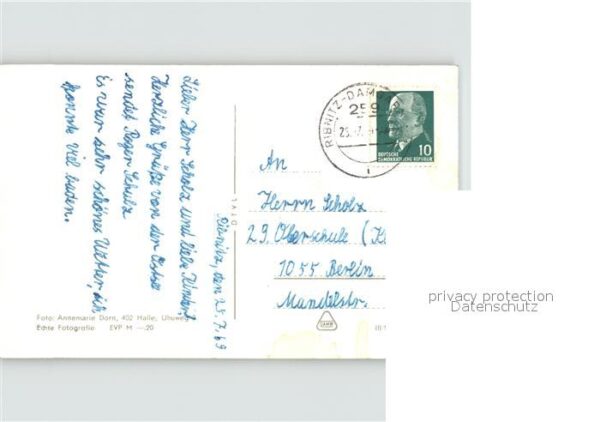 Ribnitz, den 25.7.69
Lieber Herr Scholz und liebe Kinder!
Herzliche Grüße von der Ostsee
sendet Roger Schulz
Es war sehr schönes Wetter, ich
konnte viel baden.
Foto: Annemarie Dorn, 402 Halle, Uhuweg
Echte Fotografie EVP M —.20
RIBNITZ-DAM
259
DEUTSCHE
DEMOKRATISCHE REPUBLIK
10
An
Herrn Scholz
29. Oberschule
1055 Berlin
Mandelstr.
privacy protection
Datenschutz